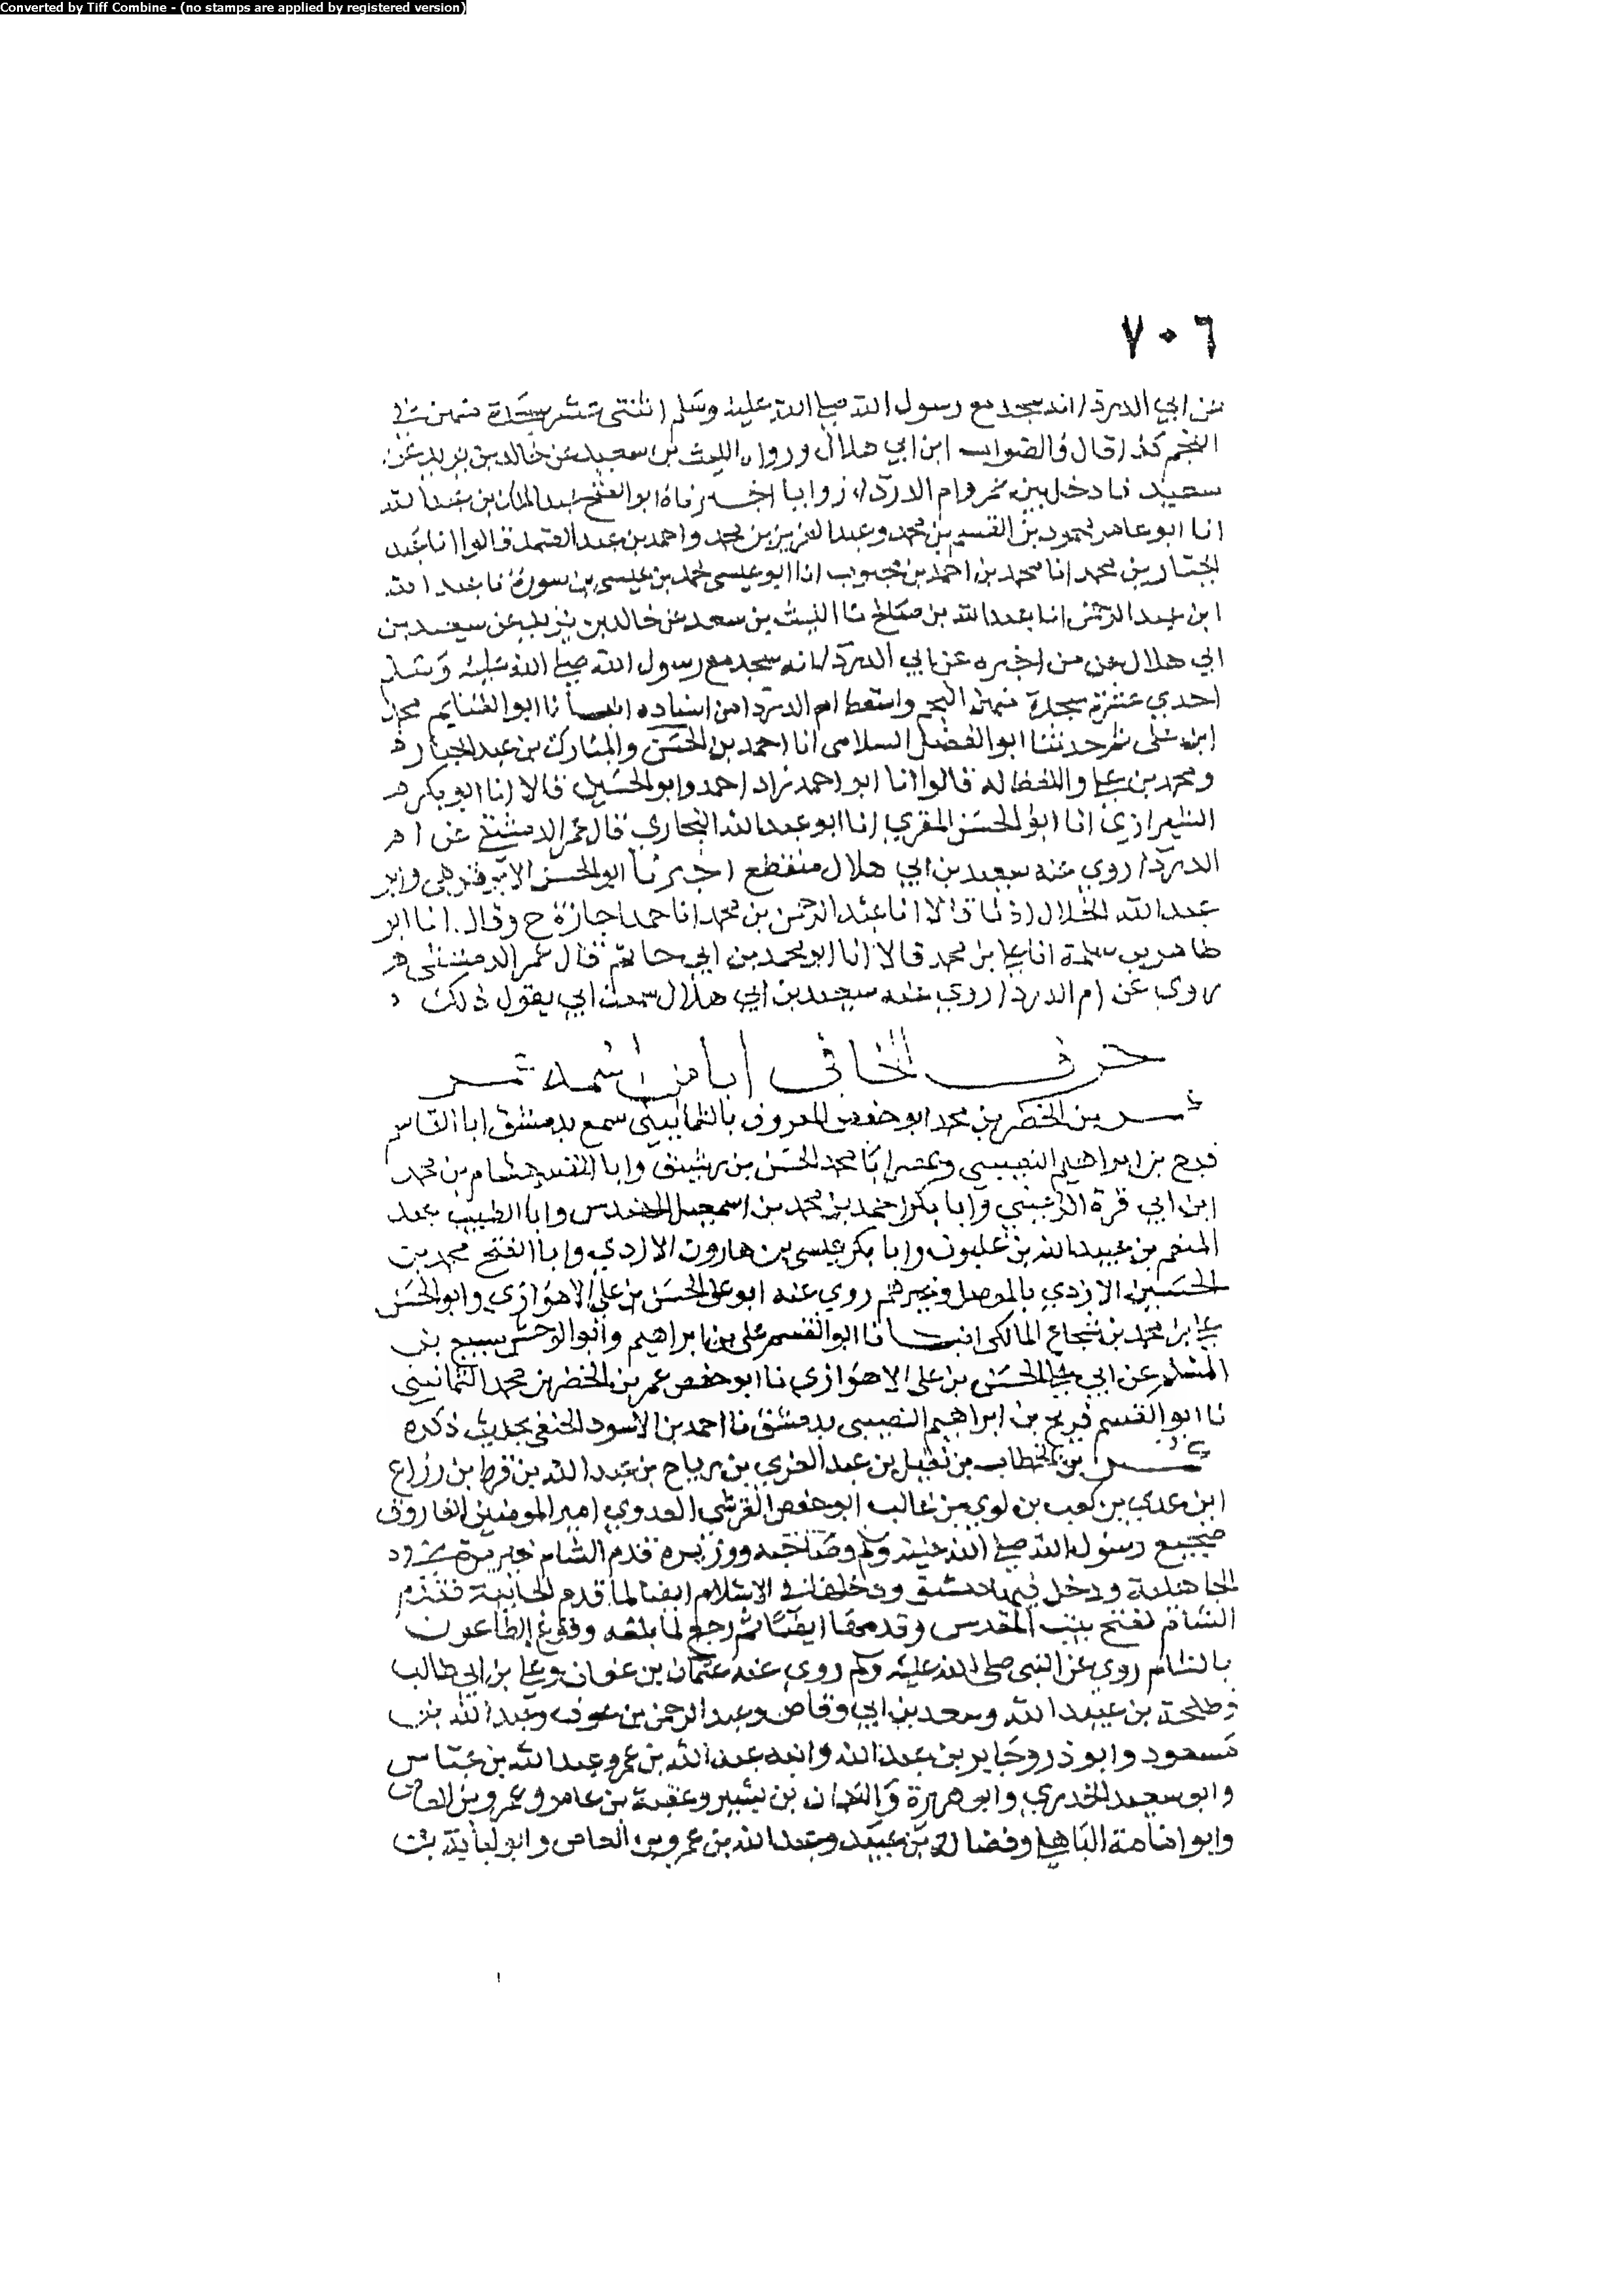 Converted by Tiff Combine - (no stamps are applied by registered version)
٧٠٦
عن ابي الدردا انه سجد مع رسول الله صلى الله عليه وسلم اثنتى عشر سجدة منهن في
النجم كذا قال والصواب ابن ابي هلال ورواه الليث بن سعيد عن خالد بن يزيد عن
سعيد فادخل بين عمر وام الدردا زوابا اخبرناه ابو الفتح عبد الملك بن عبد الله
انا ابو عامر محمود بن القسم بن محمد وعبد العزيز بن محمد واحمد بن عبد الصمد قالوا انا عبد
الجبار بن محمد انا محمد بن احمد بن محبوب انا ابو عيسى محمد بن عيسى بن سورة نا عبد الله
ابن عبد الرحمن انا عبد الله بن صالح نا الليث بن سعد عن خالد بن يزيد عن سعيد بن
ابي هلال عن من اخبره عن ابي الدردا انه سجد مع رسول الله صلى الله عليه وسلم
احدي عشرة سجدة منهن النجم واسقط ام الدردا من اسناده انبسانا ابو الغنايم محمد
ابن علي ثم حدثنا ابو الفضل السلامى انا احمد بن الحسن والمبارك بن عبد الجبار
ومحمد بن علي واللفظ له قالوا انا ابو احمد زاد احمد وابو الحسين قالا انا ابو بكر
الشيرازي انا ابو الحسن المقري انا ابو عبد الله البخاري قال عمر الدمشقي عن ام
الدردا روي عنه سعيد بن ابي هلال منقطع اخبرنا ابو الحسن الابرقوهي وابو
عبد الله الخلال اذنا قالا انا عبد الرحمن بن محمد انا حمد اجازة ح وقال انا ابو
طاهر بن سلمة انا علي بن محمد قالا انا ابو محمد بن ابي حاتم قال عمر الدمشقى
روى عن ام الدردا روي عنه سعيد بن ابي هلال سمعت ابي يقول ذلك
حرف الخا في ابا من اسمه عمر
عمر بن الخضر بن محمد ابو حفص المعروف بالثمانيني سمع بدمشق ابا القاسم
فرج بن ابراهيم النصيبي وبمصر ابا محمد الحسن بن رشيق وابا القسم هشام بن محمد
ابن ابي قرة الرعيني وابا بكر احمد بن محمد بن اسمعيل المهندس وابا الطيب عبد
المنعم بن عبيد الله بن غلبون وابا بكر عيسى بن هارون الازدي وابا الفتح محمد بن
الحسين الازدي بالموصل وغيرهم روي عنه ابو علي الحسن بن علي الاهوازي وابو الحسن
علي بن محمد بن شجاع المالكي انبانا ابو القسم على بن ابراهيم وابو الوحش سبيع بن
المسلم عن ابي علي الحسن بن على الاهوازي نا ابو حفص عمر بن الخضر بن محمد الثمانيني
نا ابو القسم فرج بن ابراهيم النصيبى بدمشق نا احمد بن الاسود الحنفي بحديث ذكره
عمر بن الخطاب بن نفيل بن عبد العزي بن رياح بن عبد الله بن قرط بن رزاح
ابن عدي بن كعب بن لوي بن غالب ابو حفص القرشي العدوي امير المومنين الفاروق
ضجيع رسول الله صلى الله عليه وسلم وصاحبه ووزيره قدم الشام غير مرة
الجاهلية ودخل فيها دمشق ودخلها في الاسلام ايضا لما قدم الجابية فقدم
الشام لفتح بيت المقدس وقدمها ايضا ثم رجع لما بلغه وقوع الطاعون
بالشام روي عن النبي صلى الله عليه وسلم روي عنه عثمان بن عفان وعلي بن ابي طالب
وطلحة بن عبيد الله وسعد بن ابي وقاص وعبد الرحمن بن عوف وعبد الله بن
مسعود وابو ذر وجابر بن عبد الله وابنه عبد الله بن عمر وعبد الله بن عباس
وابو سعيد الخدري وابو هريرة والنعمان بن بشير وعقبة بن عامر وعمرو بن العاص
وابو امامة الباهلي وفضالة بن عبيد وعبد الله بن عمرو بن العاص وابو لبابة بن